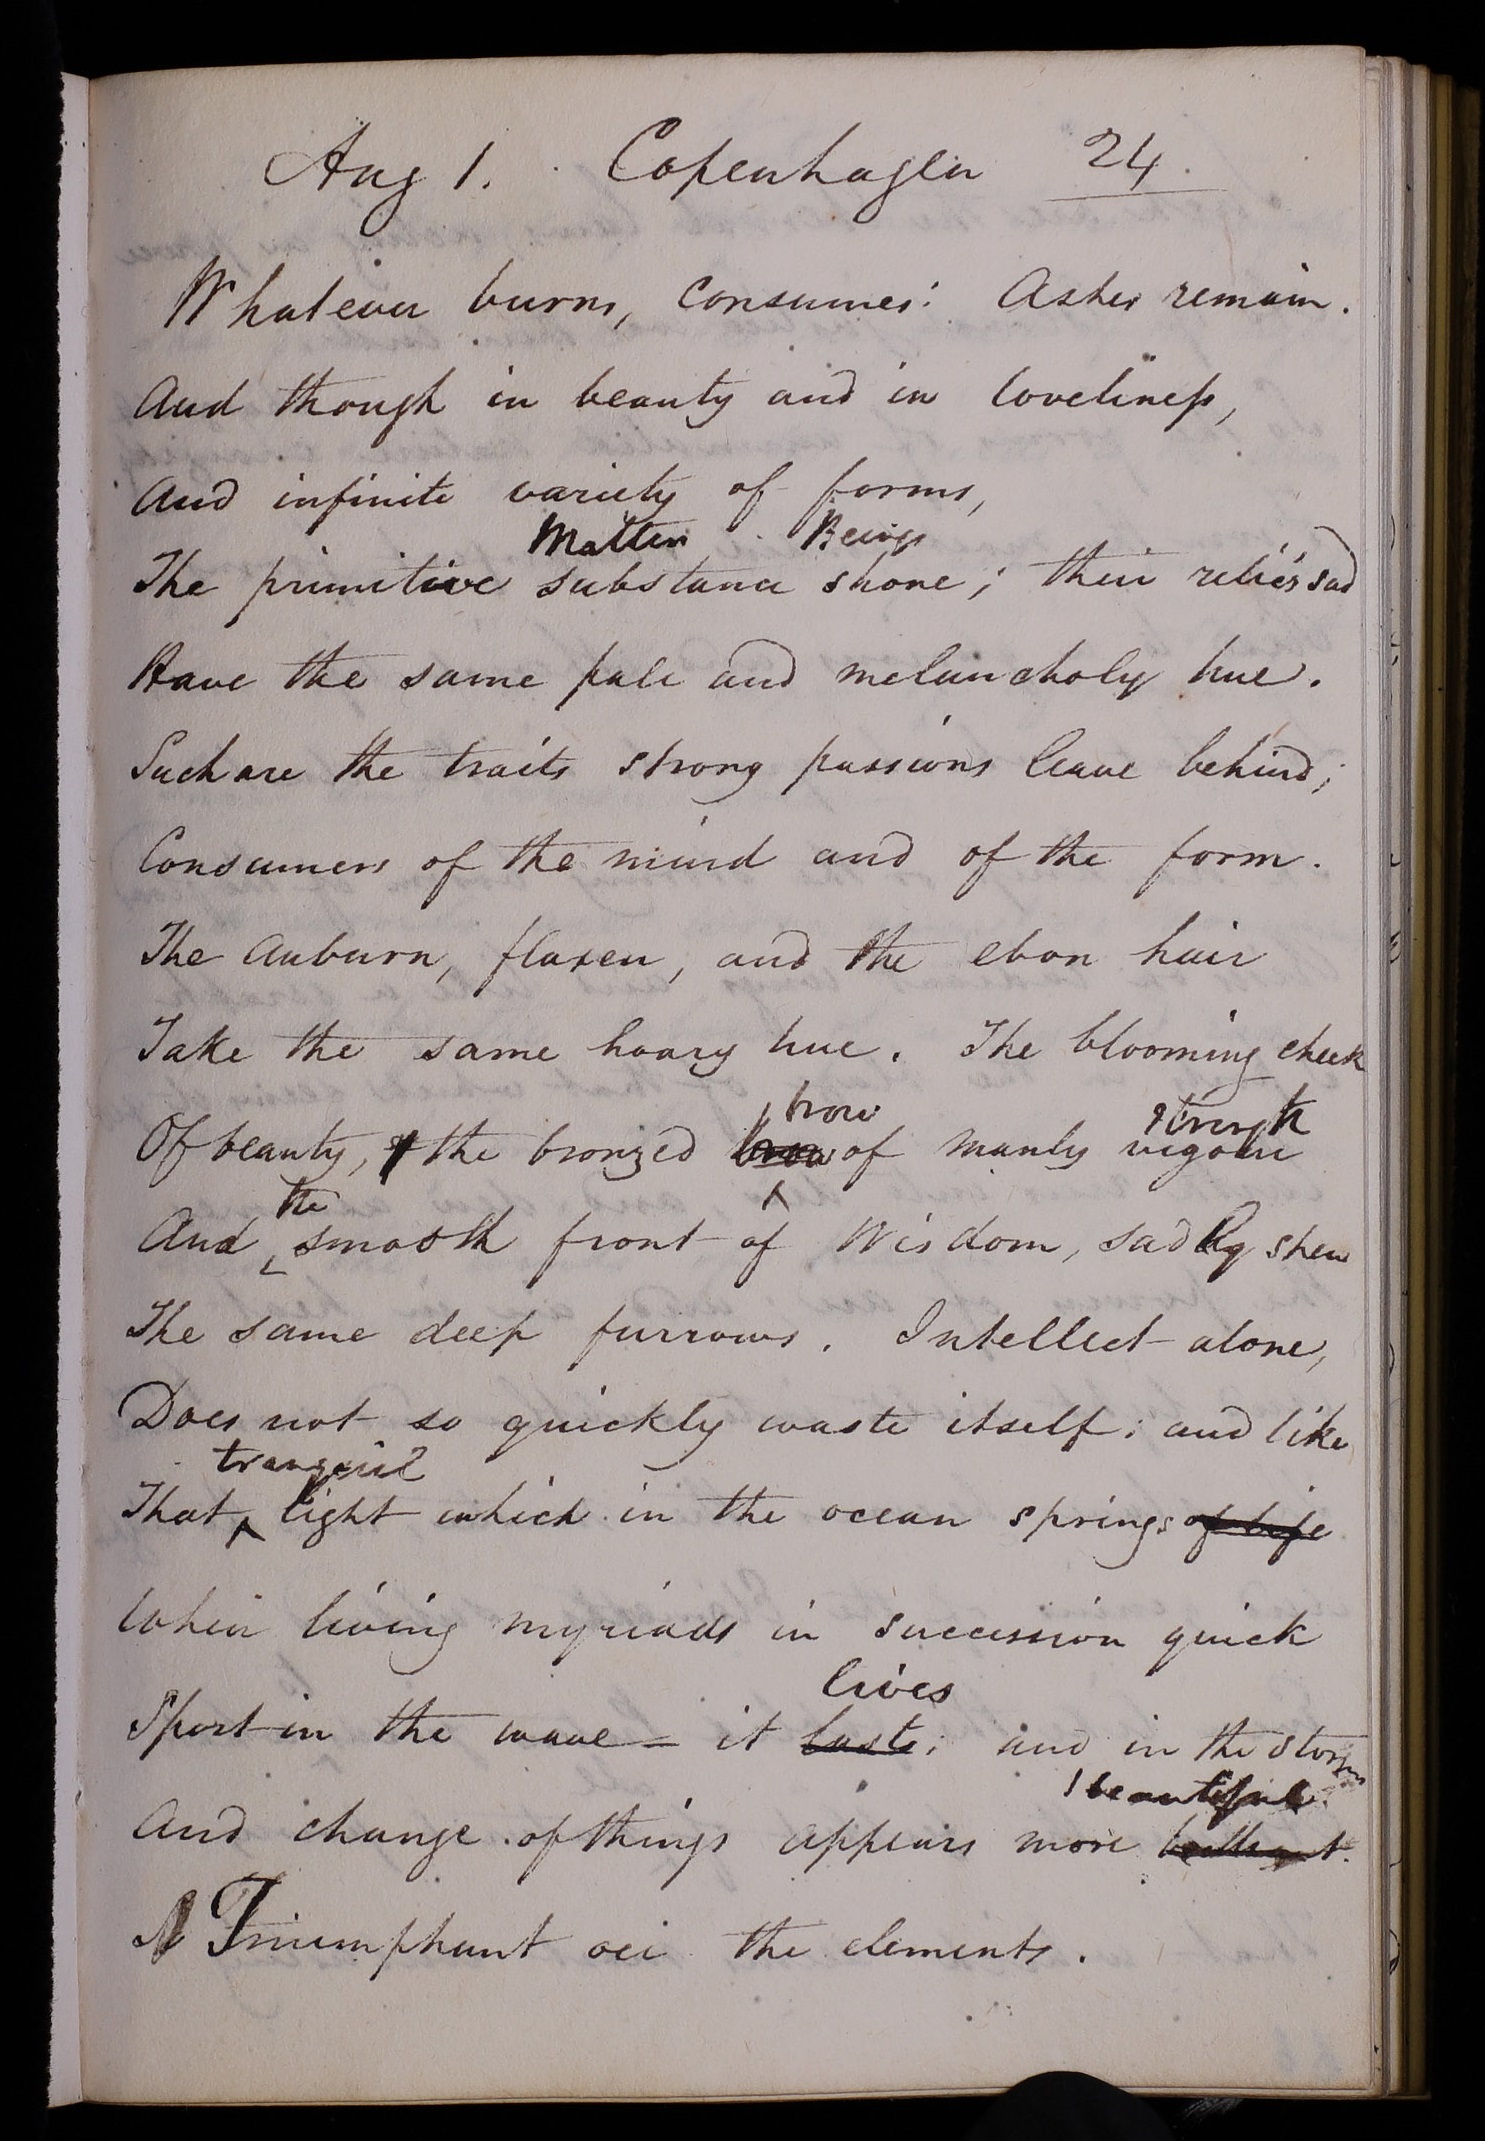 Aug 1. Copenhagen 24.
Whatever burns, consumes: Ashes remain.
And though in beauty and in loveliness,
And infinite variety of forms,
Matter Beings
The primitive substance shone; their relics sad
Have the same pale and melancholy hue.
Such are the traits strong passions leave behind;
Consumers of the mind and of the form.
The auburn, flaxen, and the ebon hair
Take the same hoary hue. The blooming cheek
brow strength
Of beauty, the bronzed brow of manly vigour
the
And smooth front of Wisdom, sadly shew
The same deep furrows. Intellect alone,
Does not so quickly waste itself: and like
tranquil
That light which in the ocean springs of life
When living myriads in succession quick
lives
Sport in the wave = it lasts; and in the storm
beautiful.
And change of things appears more brilliant.
Triumphant oer the elements.